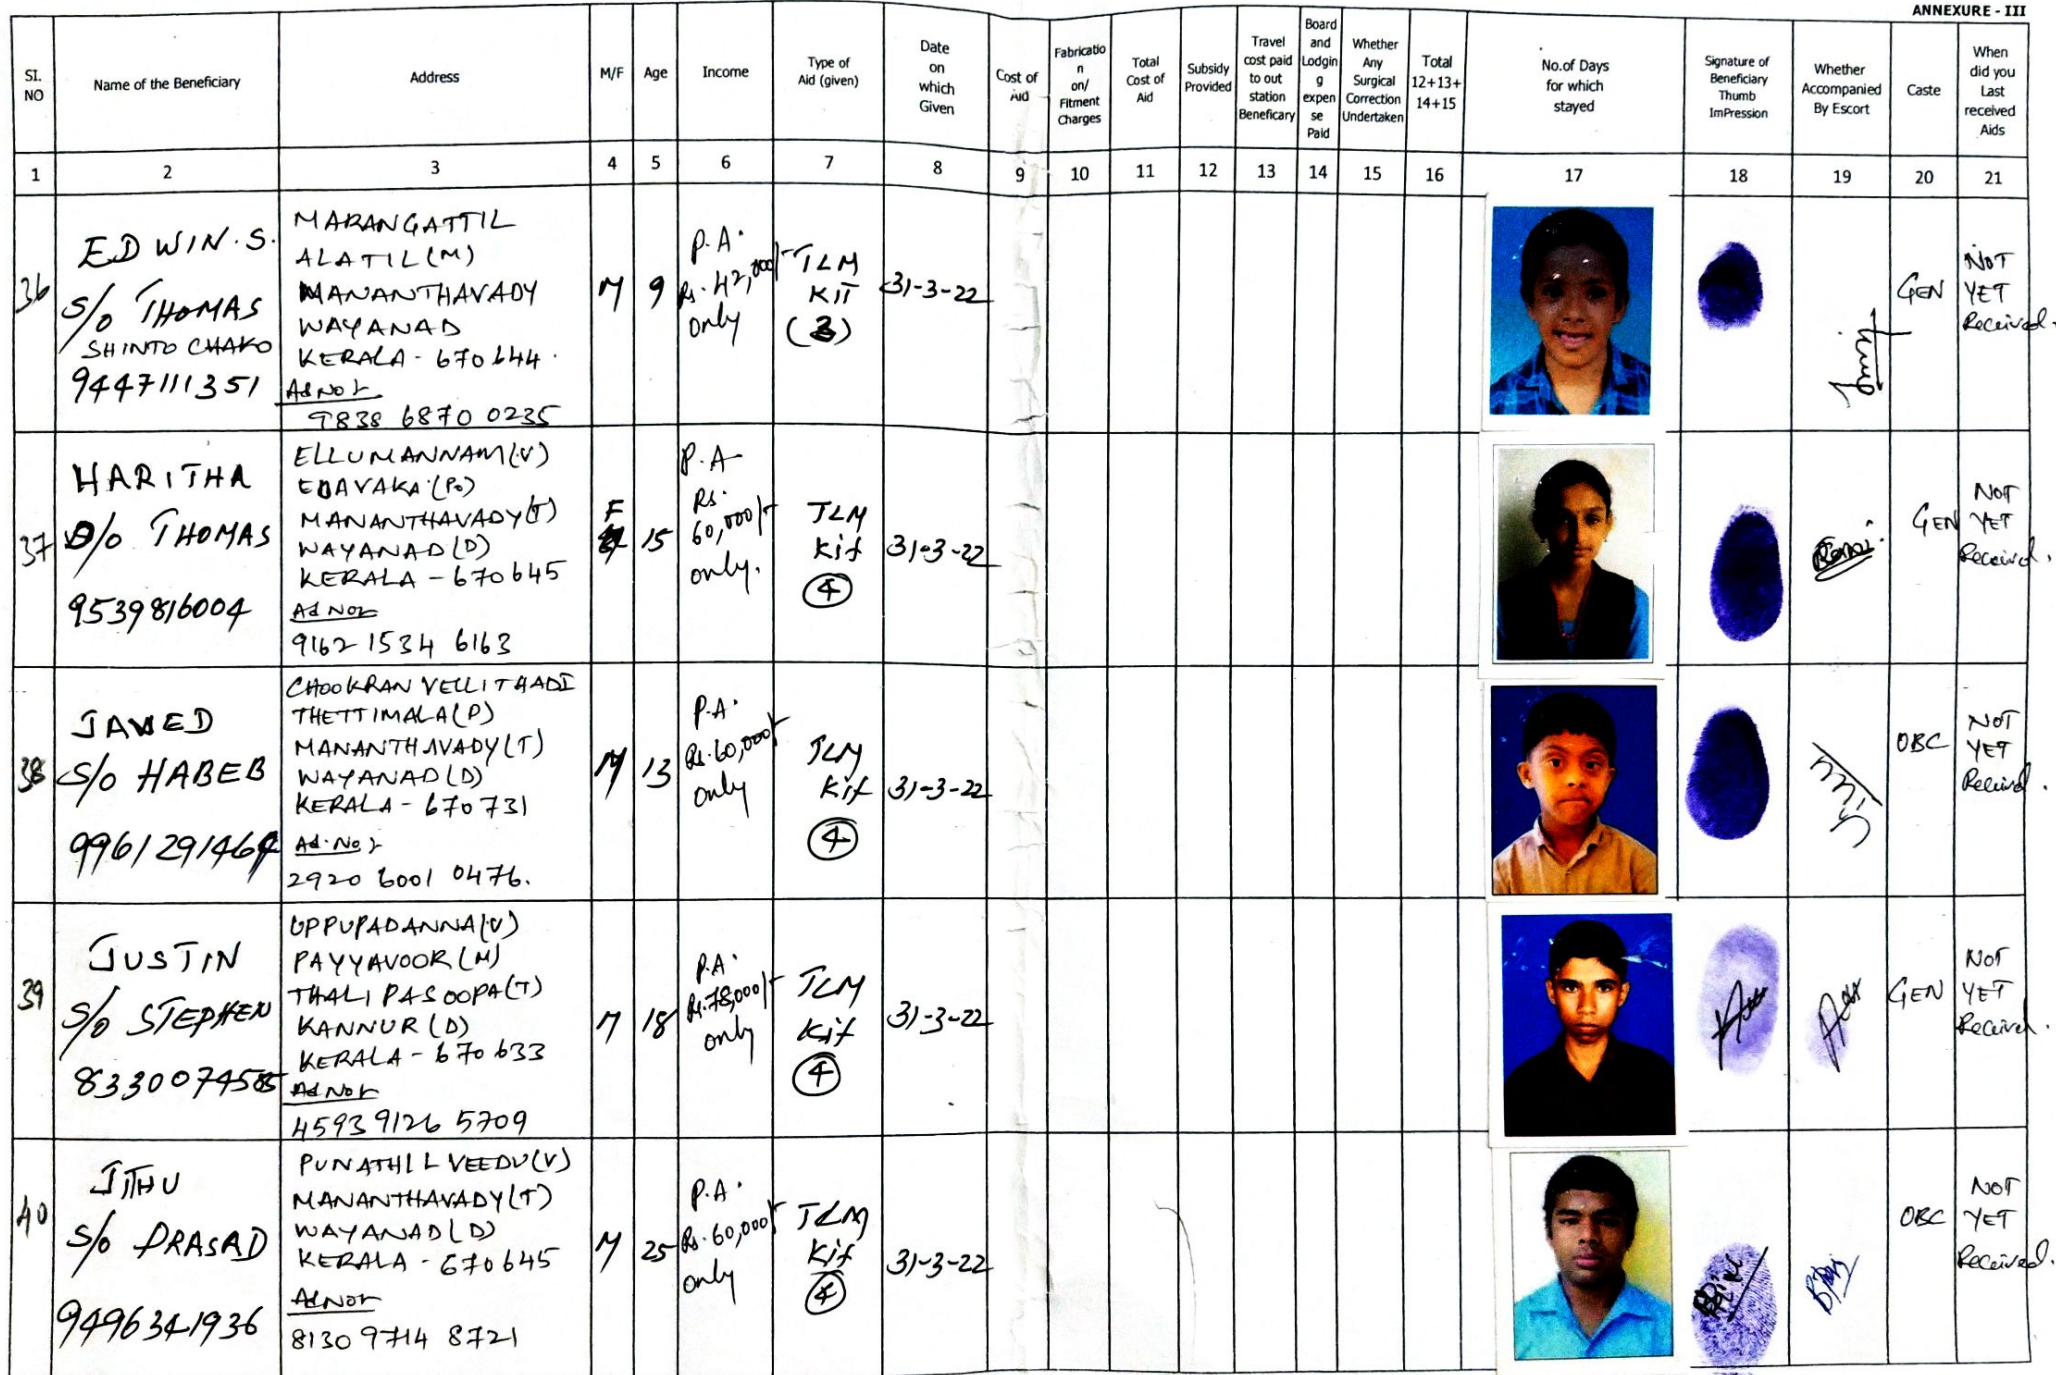 ANNEXURE - III
SI. NO
Name of the Beneficiary
Address
M/F
Age
Income
Type of Aid (given)
Date on which Given
Cost of Aid
Fabricatio n on/ Fitment Charges
Total Cost of Aid
Subsidy Provided
Travel cost paid to out station Beneficary
Board and Lodgin g expen se Paid
Whether Any Surgical Correction Undertaken
Total 12+13+ 14+15
No.of Days for which stayed
Signature of Beneficiary Thumb ImPression
Whether Accompanied By Escort
Caste
When did you Last received Aids
1 2 3 4 5 6 7 8 9 10 11 12 13 14 15 16 17 18 19 20 21
36
EDWIN. S.
S/o THOMAS
SHINTO CHAKO
9447111351
MARANGATTIL
ALATIL (M)
MANANTHAVADY
WAYANAD
KERALA - 670644.
Ad No:
9838 6870 0235
M
9
P.A.
Rs. 42,000/-
only
TLM
Kit
(3)
31-3-22
GEN
NOT
YET
Received.
37
HARITHA
D/o THOMAS
9539816004
ELLUMANNAM (V)
EDAVAKA (Po)
MANANTHAVADY (T)
WAYANAD (D)
KERALA - 670645
Ad No:
9162 1534 6163
F
15
P.A
Rs.
60,000/-
only.
TLM
Kit
4
31-3-22
GEN
NOT
YET
Received.
38
JAWED
S/o HABEB
9961291464
CHOOKRAN VELLITHADI
THETTIMALA (P)
MANANTHAVADY (T)
WAYANAD (D)
KERALA - 670731
Ad. No:
2920 6001 0476.
M
13
P.A.
Rs. 60,000/-
only
TLM
Kit
4
31-3-22
OBC
NOT
YET
Received.
39
JUSTIN
S/o STEPHEN
8330074585
UPPUPADANNA (V)
PAYYAVOOR (M)
THALIPASOOPA (T)
KANNUR (D)
KERALA - 670633
Ad No:
4593 9126 5709
M
18
P.A.
Rs. 78,000/-
only
TLM
Kit
4
31-3-22
GEN
NOT
YET
Received.
40
JITHU
S/o PRASAD
9496341936
PUNATHIL VEEDU (V)
MANANTHAVADY (T)
WAYANAD (D)
KERALA - 670645
Ad No:
8130 9714 8721
M
25
P.A.
Rs. 60,000/-
only
TLM
Kit
4
31-3-22
OBC
NOT
YET
Received.